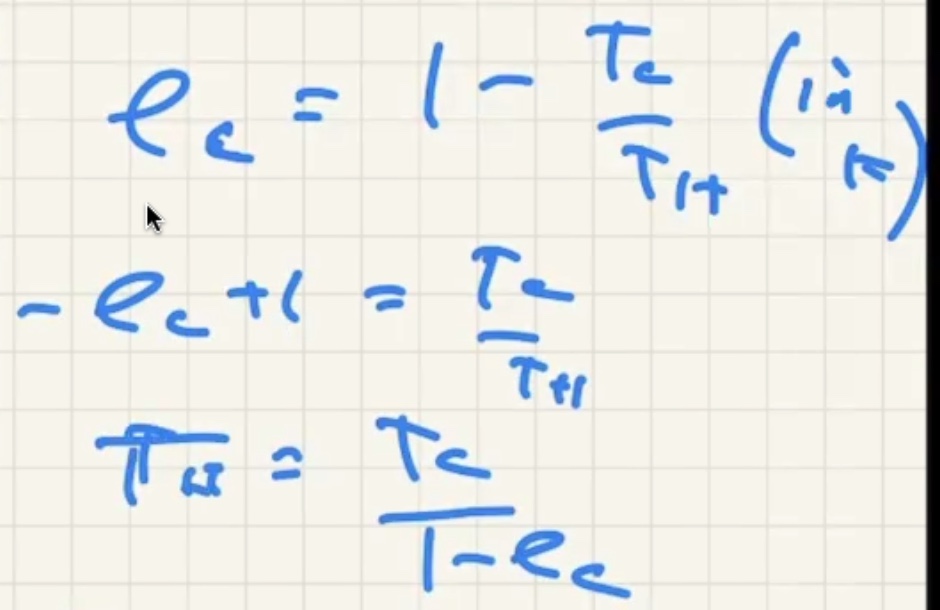 e_c = 1 - T_c / T_H (in K)
- e_c + 1 = T_c / T_H
T_H = T_c / 1 - e_c